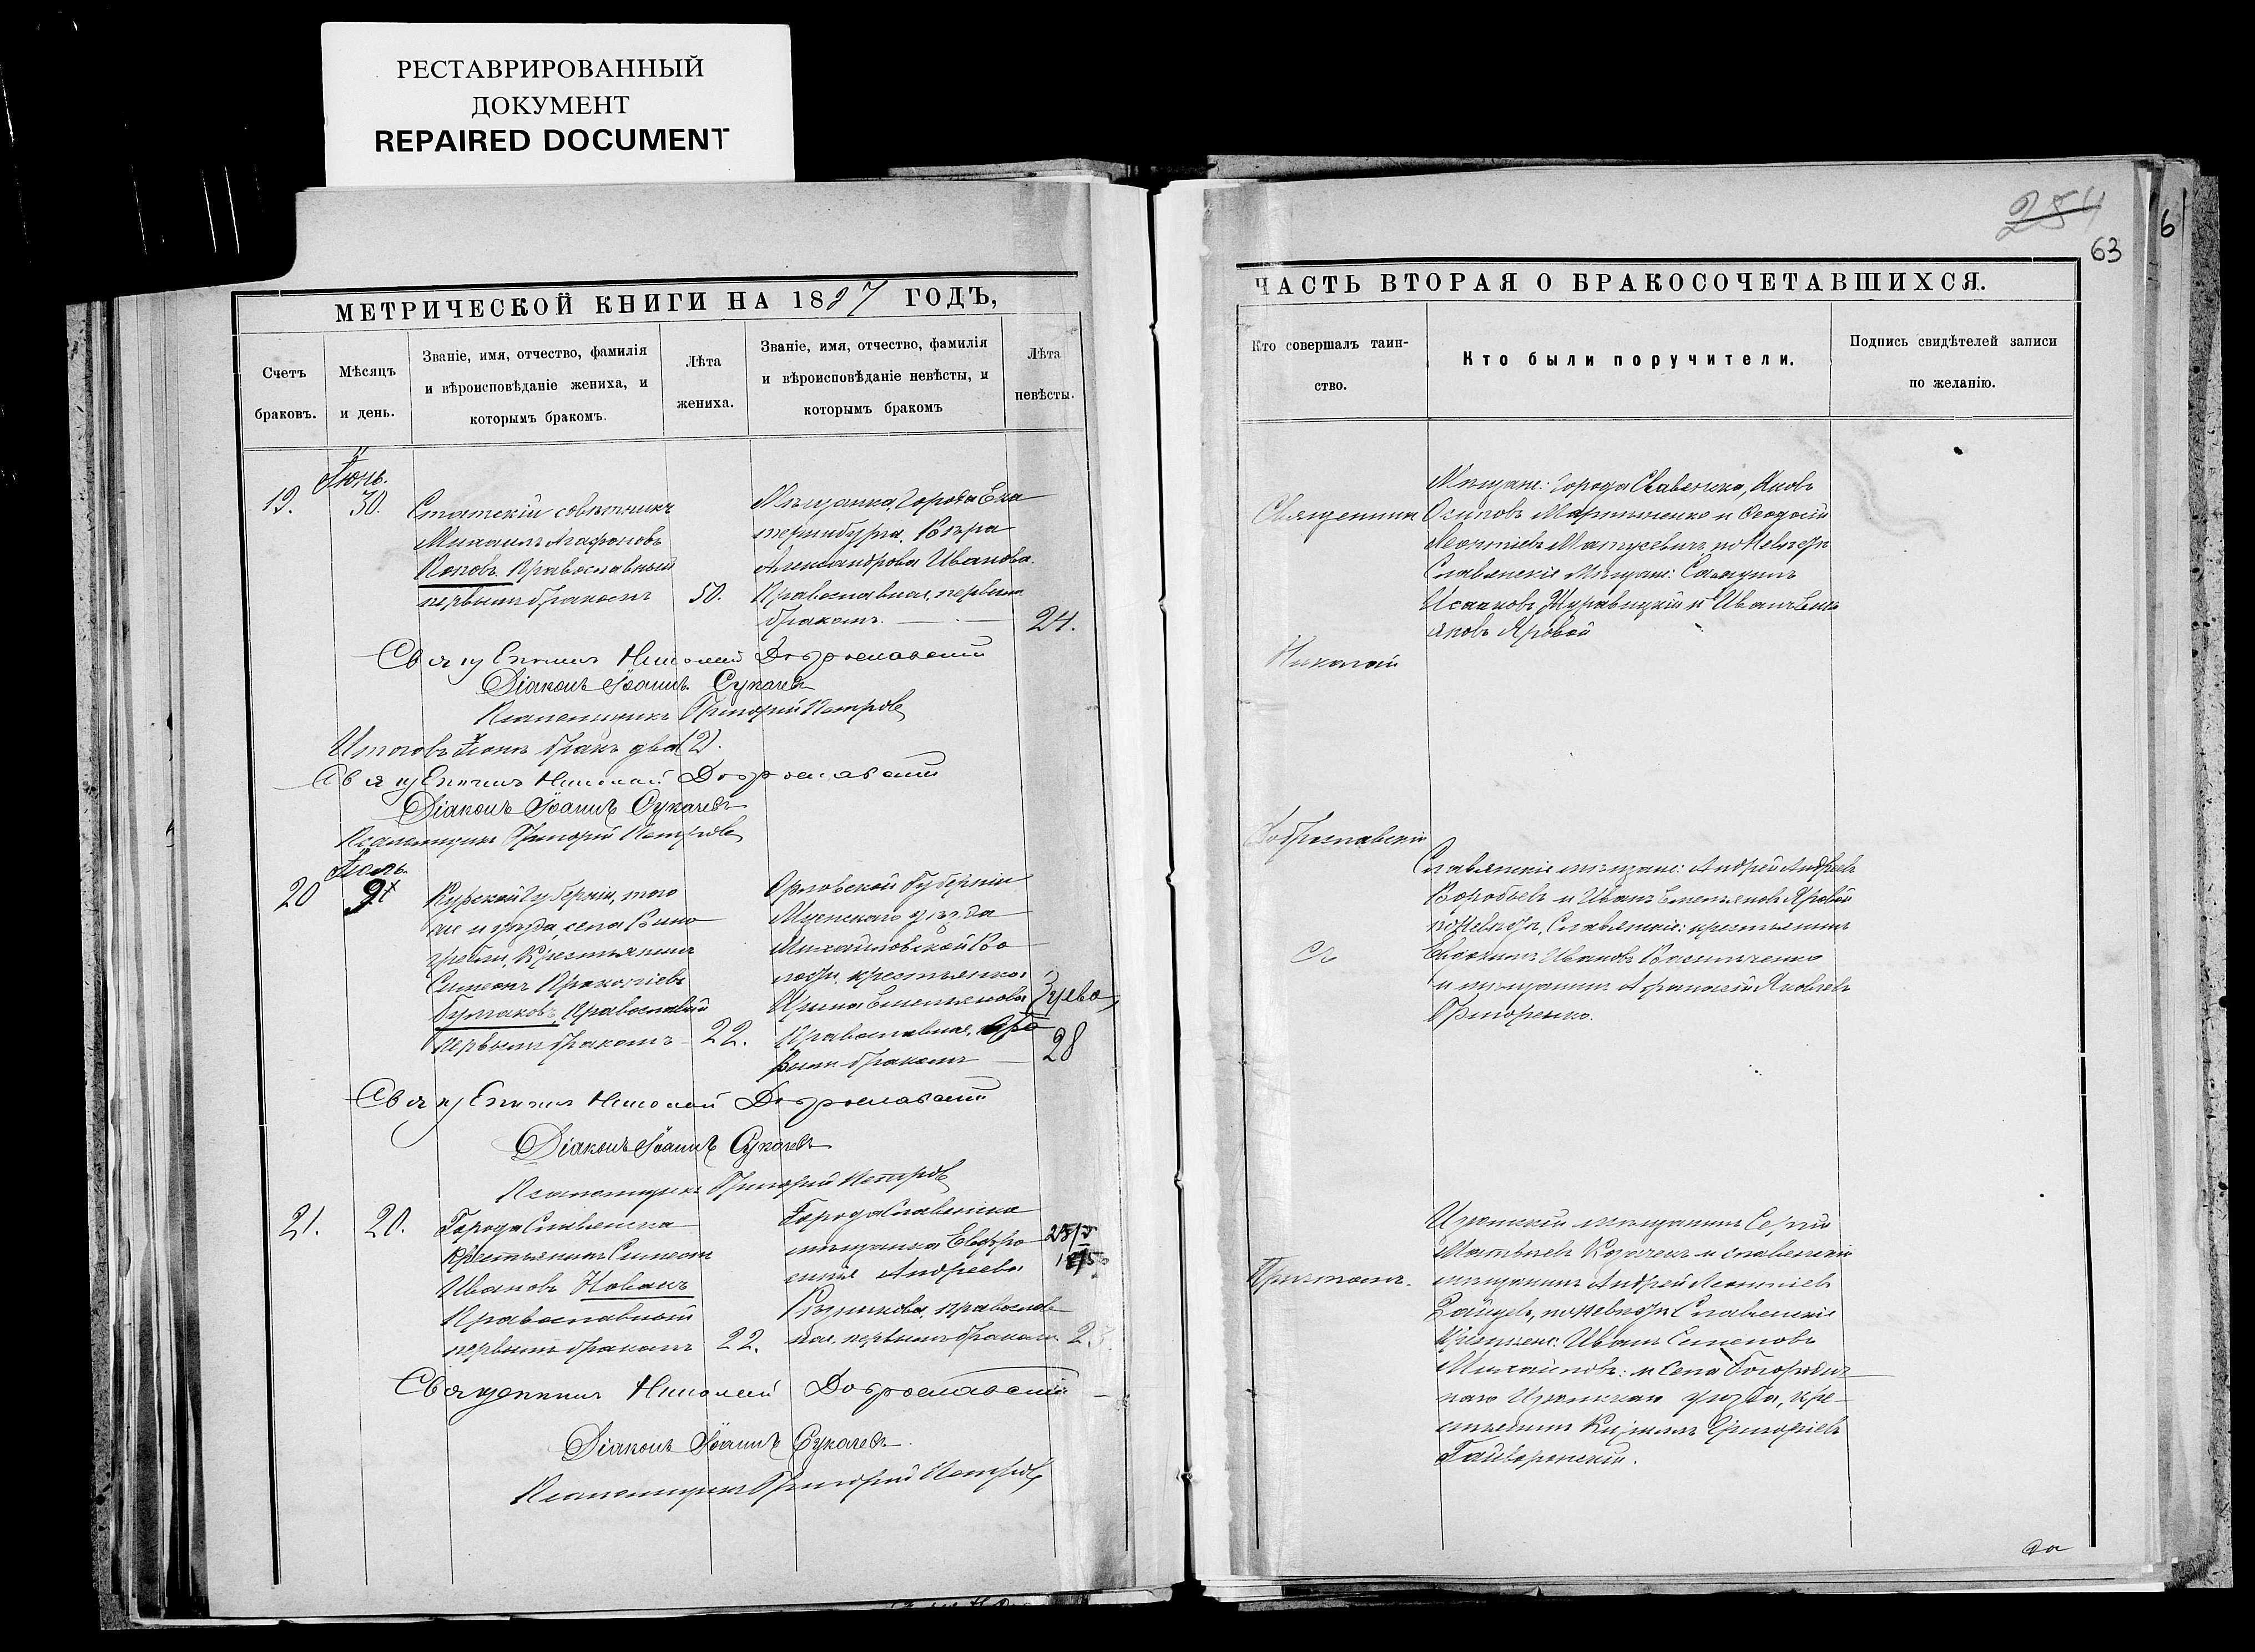 РЕСТАВРИРОВАННЫЙ
ДОКУМЕНТ
REPAIRED DOCUMENT
МЕТРИЧЕСКОЙ КНИГИ НА 1897 ГОДЪ,
Счетъ браковъ.
Мѣсяцъ и день.
Званіе, имя, отчество, фамилія
и вѣроисповѣданіе жениха, и
которымъ бракомъ.
Лѣта жениха.
Званіе, имя, отчество, фамилія
и вѣроисповѣданіе невѣсты, и
которымъ бракомъ
Лѣта невѣсты.
Іюнь.
19.
30.
Статскій совѣтникъ
Михаилъ Агафоновъ
Поповъ. Православный
первымъ бракомъ
50.
Мѣщанка, Города Ека
теринбурга, Вѣра
Александрова Иванова.
Православная, первымъ
бракомъ.
24.
Священникъ Николай Доброславскій
Діаконъ Іоаннъ Сукачевъ
Псаломщикъ Григорій Петровъ
бракъ два (2).
Священникъ Николай Доброславскій
Діаконъ Іоаннъ Сукачевъ
Псаломщикъ Григорій Петровъ
Іюль.
20
9
Курской Губерніи, того
же уѣзда, села Вино
гробли, Крестьянинъ
Симеонъ Прокопіевъ
Православный
первымъ бракомъ
22.
Орловской Губерніи
Мценскаго уѣзда
Михайловской Во
лости, крестьянка
Ирина Емельянова Зуева,
Православная,
бракомъ
28
Священникъ Николай Доброславскій
Діаконъ Іоаннъ Сукачевъ
Псаломщикъ Григорій Петровъ
21.
20.
Города Славянска
крестьянинъ Симеонъ
Ивановъ Новакъ
Православный
первымъ бракомъ
22.
Города Славянска
мѣщанка Евфро
синія Андреева
православ
ная, первымъ бракомъ
Священникъ Николай Доброславскій
Діаконъ Іоаннъ Сукачевъ.
Псаломщикъ Григорій Петровъ
254
63
6
ЧАСТЬ ВТОРАЯ О БРАКОСОЧЕТАВШИХСЯ.
Кто совершалъ таин-
ство.
Кто были поручители.
Подпись свидѣтелей записи
по желанію.
Священникъ
Николай
Доброславскій
съ
Причтомъ.
Мѣщане: Города Славянска, Яковъ
Осиповъ Мартыненко и Феодосій
Леонтіевъ Матусевичъ, по невѣстѣ
Славянскіе Мѣщане: Самуилъ
Исааковъ Журавицкій и Иванъ Емель
яновъ Яровой
Славянскіе мѣщане: Андрей Андреевъ
Воробьевъ и Иванъ Емельяновъ Яровой
по невѣстѣ, Славянскіе: крестьянинъ
Евдокимъ Ивановъ Василенко
и мѣщанинъ Афанасій Яковлевъ
Григоренко.
Изюмскій мѣщанинъ Сергій
Матвѣевъ и славянскій
мѣщанинъ Андрей Леонтіевъ
Зайцевъ, по невѣстѣ Славянскіе
Иванъ Семеновъ
Михайловъ: и Села Богородич
наго Изюмскаго уѣзда, кре-
стьянинъ Григоріевъ
Гайворонскій.